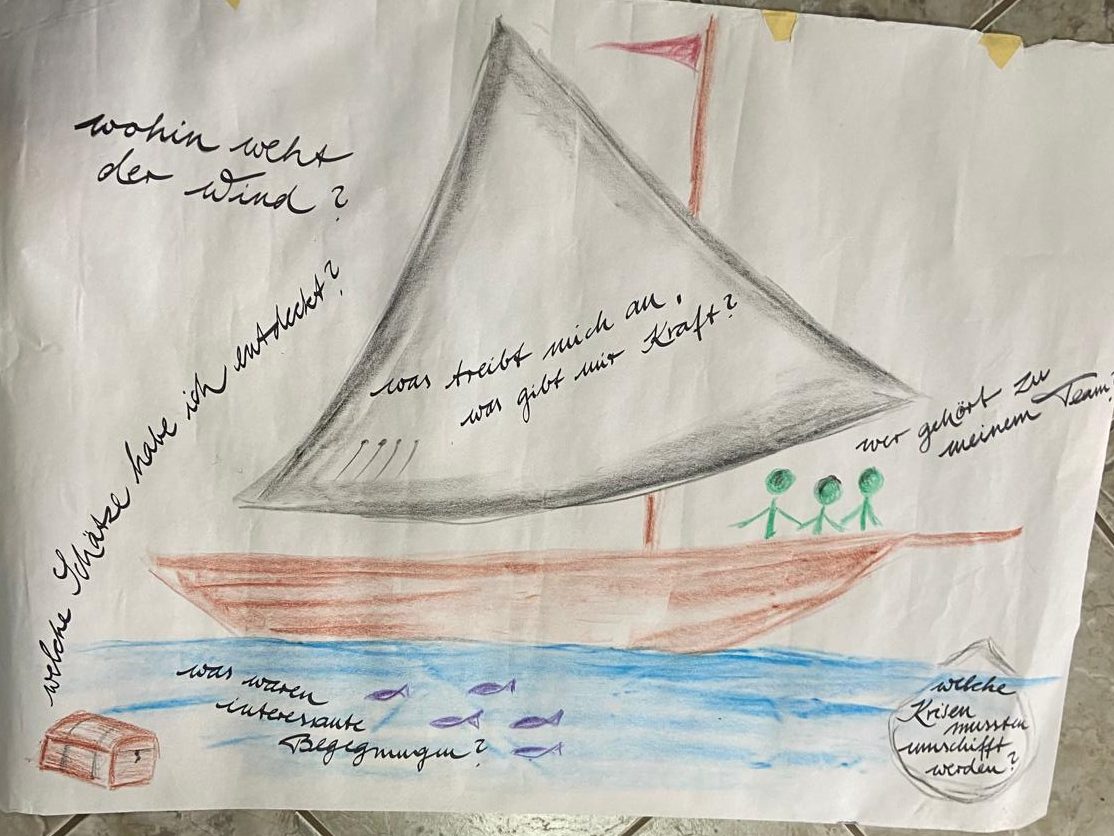 wohin weht
der Wind?
welche Schätze habe ich entdeckt?
was treibt mich an,
was gibt mir Kraft?
wer gehört zu
meinem Team?
was waren
interessante
Begegnungen?
welche
Krisen
mussten
umschifft
werden?